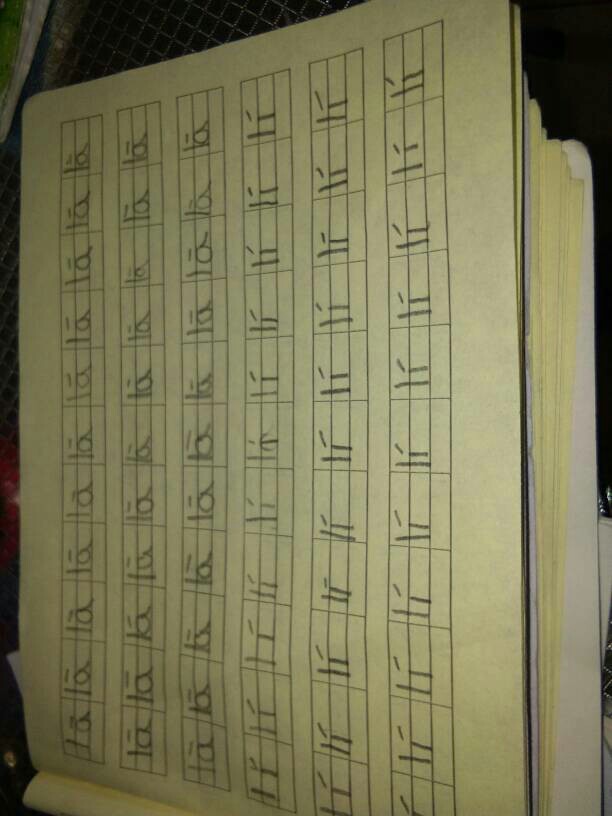 lā lā lā lā lā lā lā lā lā lā lā
lā lā lā lā lā lā lā lā lā lā lā
lā lā lā lā lā lā lā lā lā lā lā
lí lí lí lí lí lí lí lí lí lí lí
lí lí lí lí lí lí lí lí lí lí lí
lí lí lí lí lí lí lí lí lí lí lí